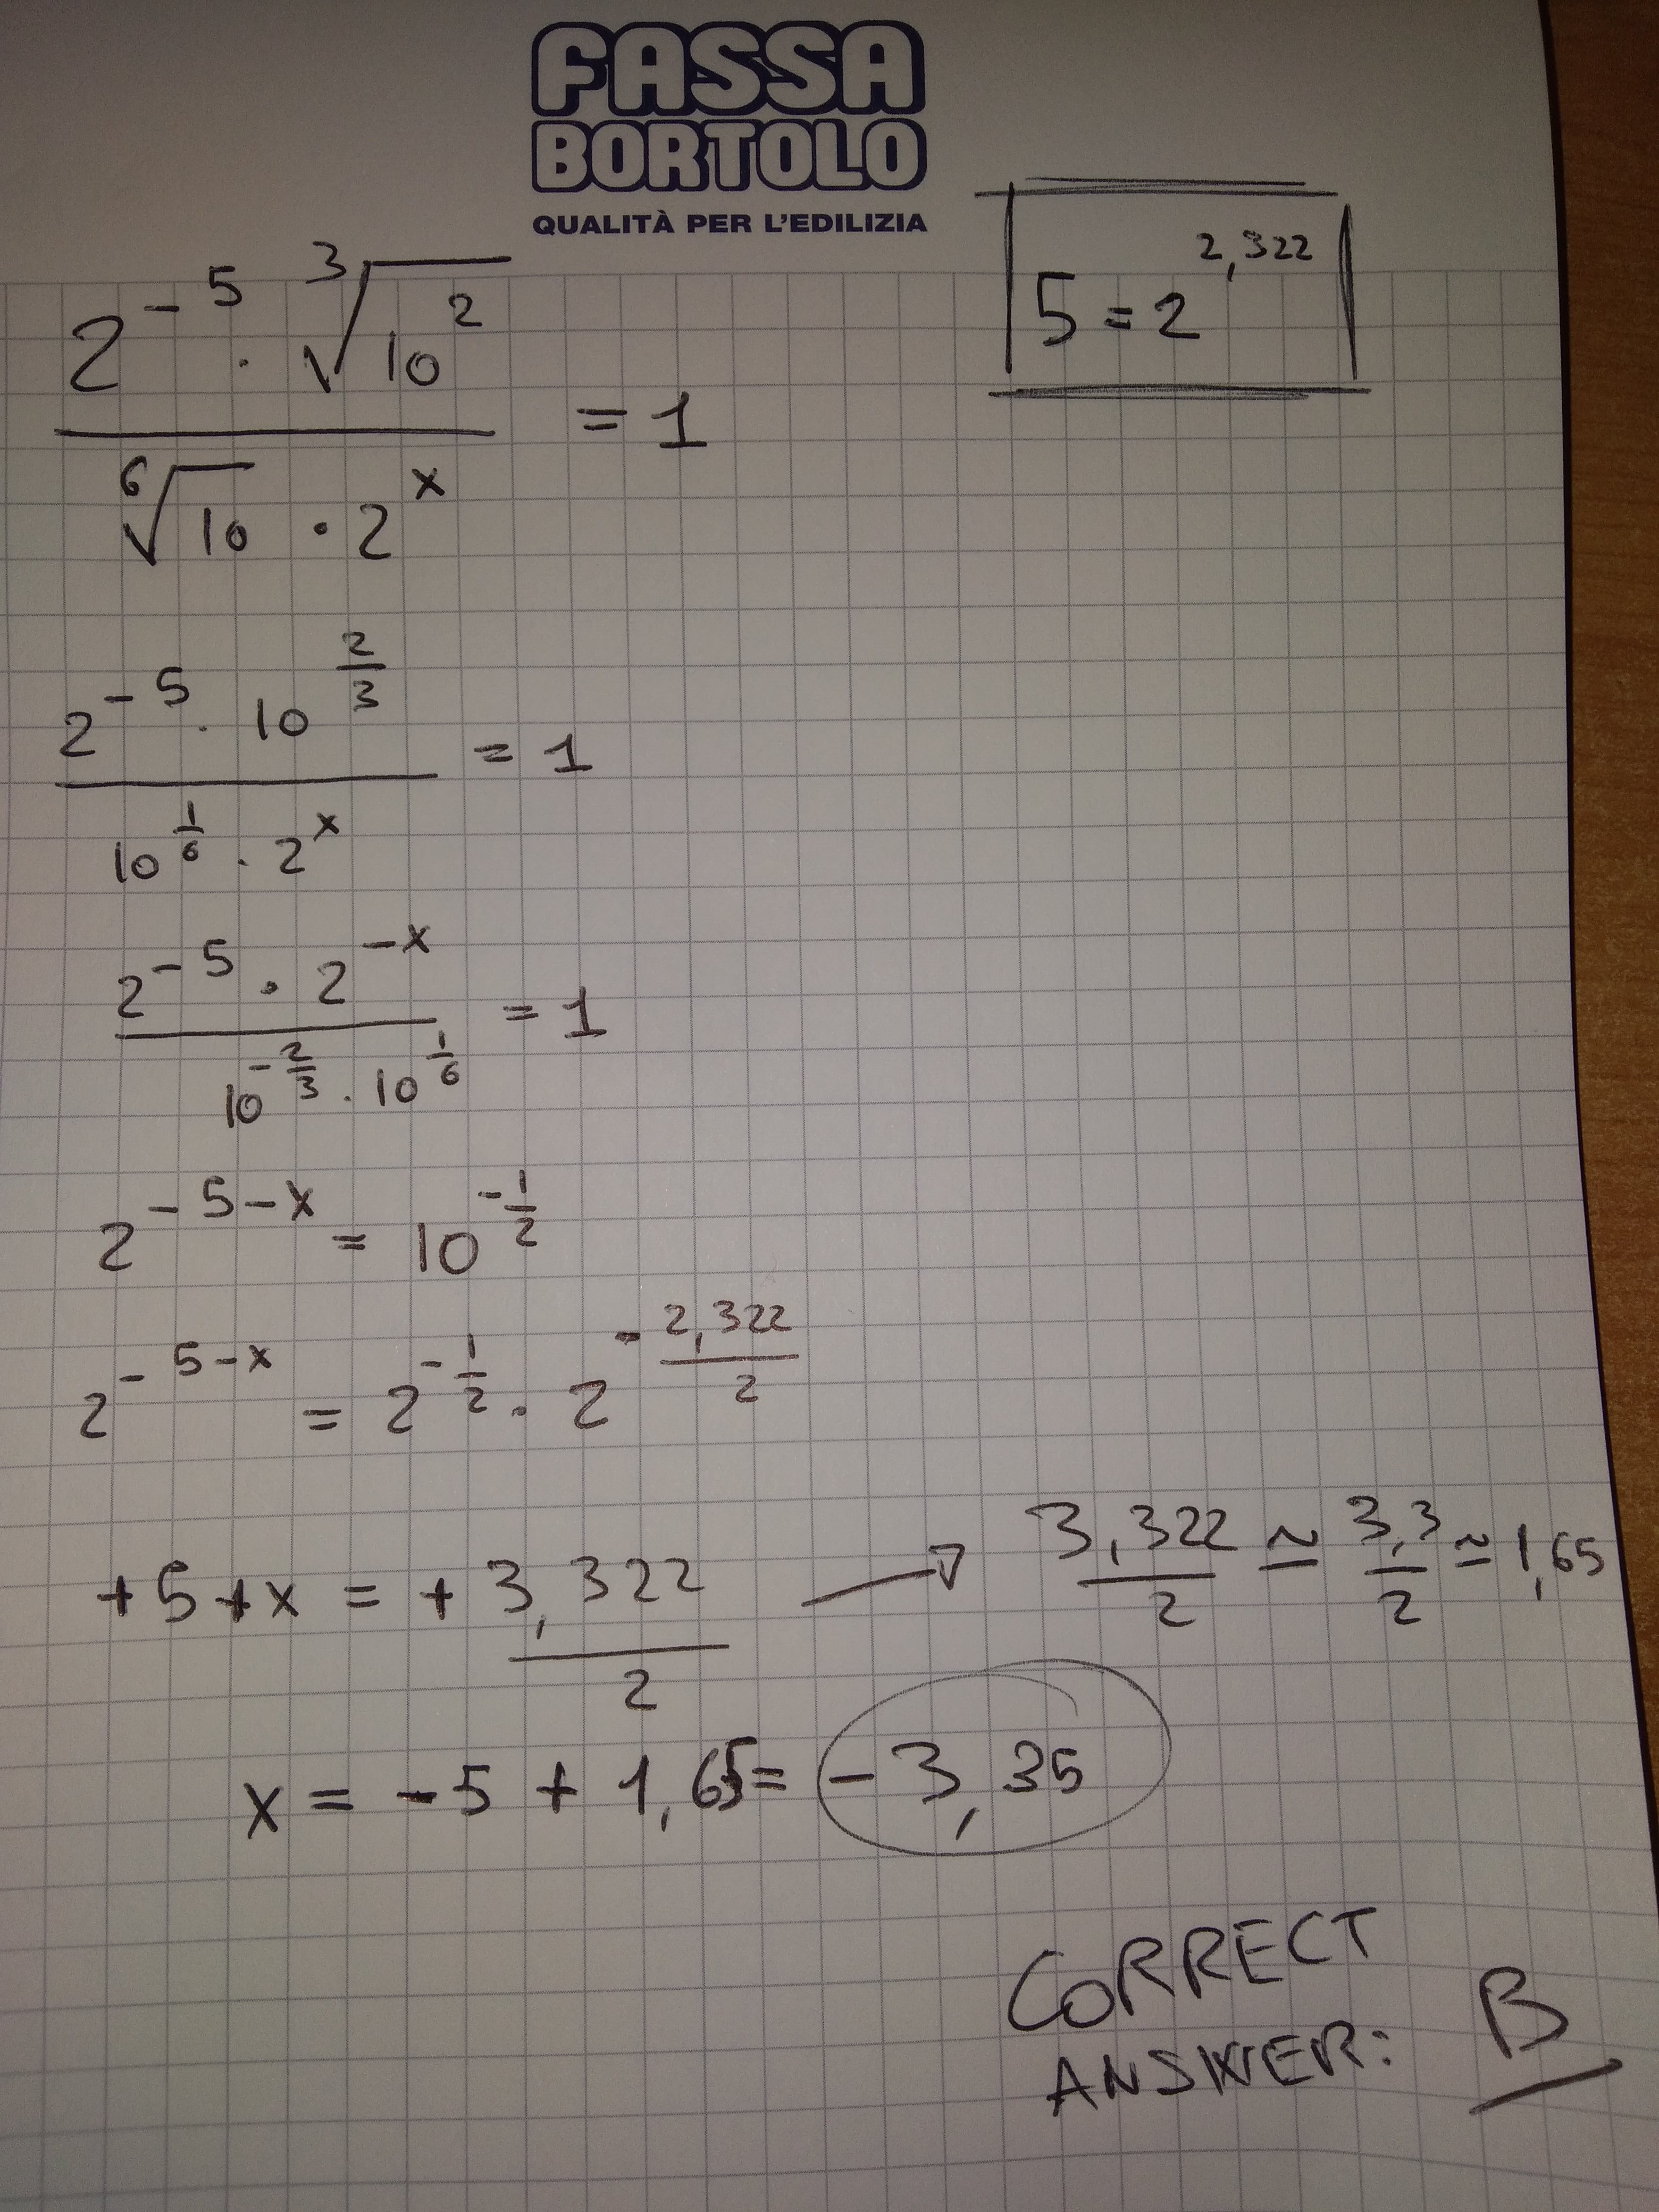 FASSA
BORTOLO
QUALITÀ PER L'EDILIZIA
5 = 2^2,322
2^-5 · ∛10^2 / ⁶√10 · 2^x = 1
2^-5 · 10^2/3 / 10^1/6 · 2^x = 1
2^-5 · 2^-x / 10^-2/3 · 10^1/6 = 1
2^-5-x = 10^-1/2
2^-5-x = 2^-1/2 · 2^-2,322/2
+5+x = +3,322/2 → 3,322/2 ≃ 3,3/2 ≃ 1,65
x = -5 + 1,65 = -3,35
CORRECT
ANSWER: B